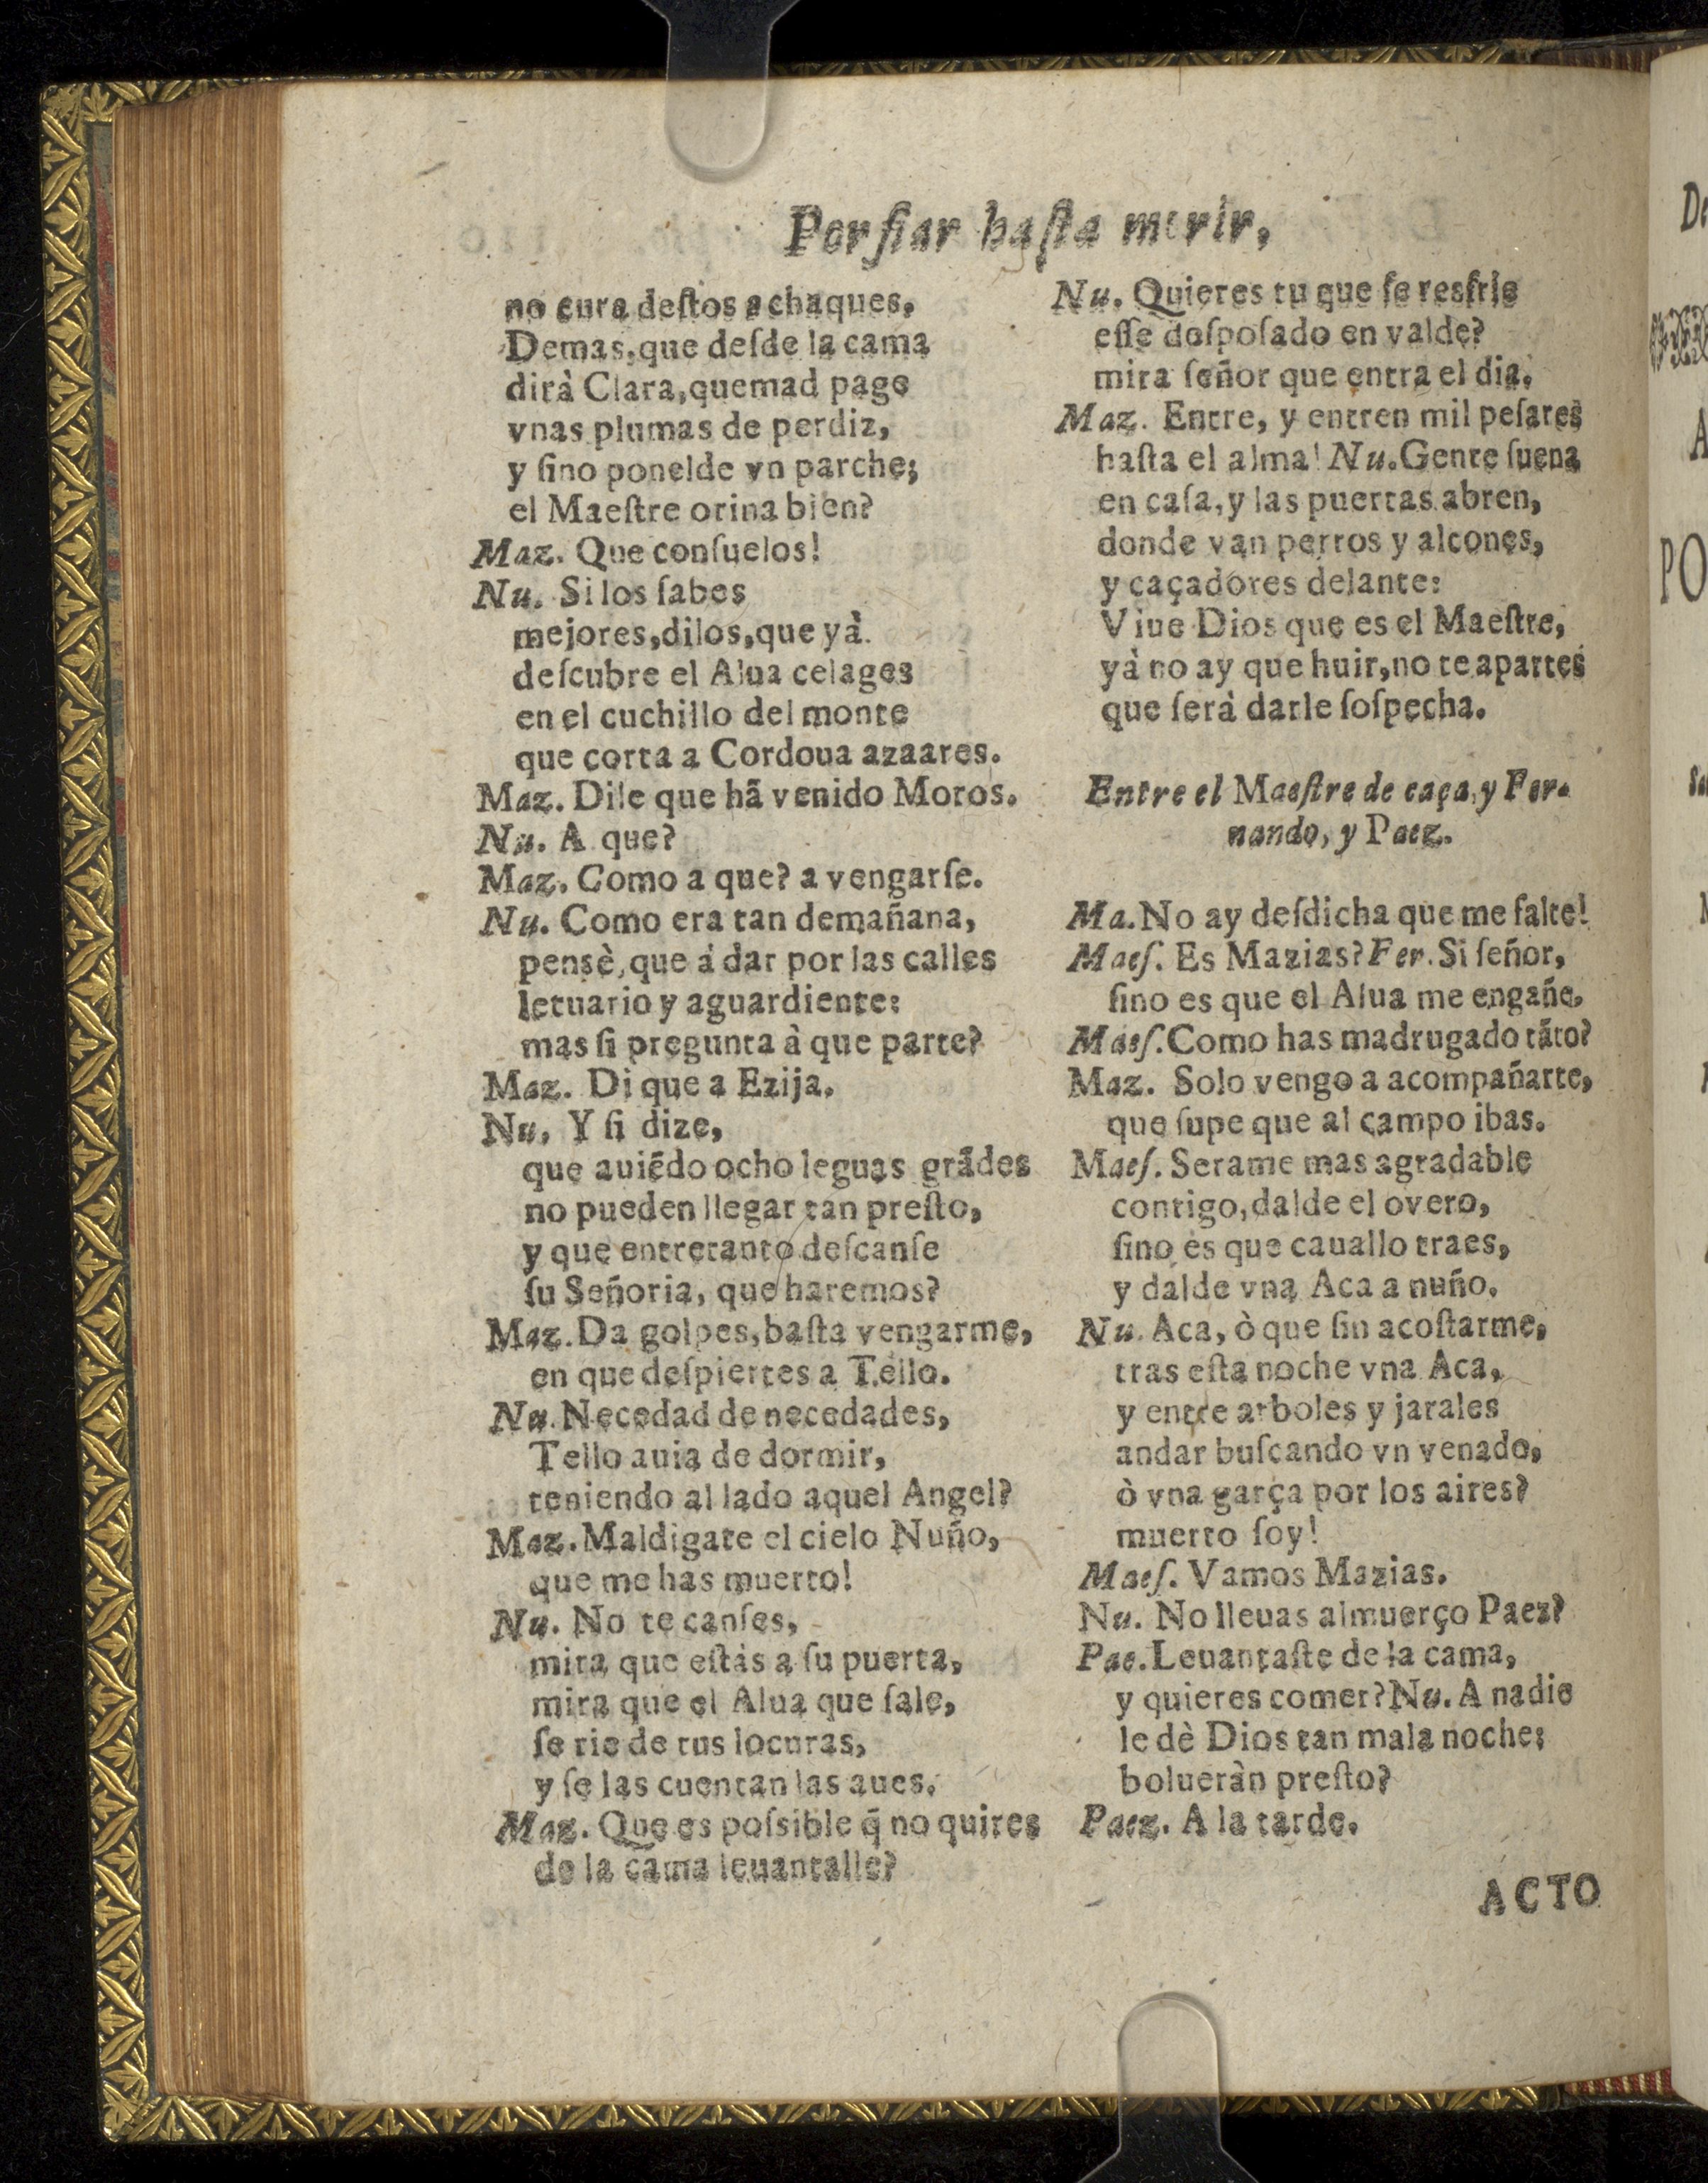 Porfiar haſta morir,
no cura deſtos achaques,
Demas, que deſde la cama
dirà Clara, quemad page
vnas plumas de perdiz,
y ſino ponelde vn parche;
el Maeſtre orina bien?
Maz. Que conſuelos!
Nu. Si los ſabes
mejores, dilos, que yà
deſcubre el Alua celages
en el cuchillo del monte
que corta a Cordoua azaares.
Maz. Dile que hã venido Moros.
Nu. A que?
Maz. Como a que? a vengarſe.
Nu. Como era tan demañana,
pensè, que á dar por las calles
letuario y aguardiente:
mas ſi pregunta à que parte?
Maz. Di que a Ezija.
Nu. Y ſi dize,
que auiẽdo ocho leguas grãdes
no pueden llegar tan preſto,
y que entretanto deſcanſe
ſu Señoria, que haremos?
Maz. Da golpes, baſta vengarme,
en que deſpiertes a Tello.
Nu. Necedad de necedades,
Tello auia de dormir,
teniendo al lado aquel Angel?
Maz. Maldigate el cielo Nuño,
que me has muerto!
Nu. No te canſes,
mira que eſtàs a ſu puerta,
mira que el Alua que ſale,
ſe rie de tus locuras,
y ſe las cuentan las aues.
Maz. Que es poſsible q̃ no quires
de la cama leuantalle?
Nu. Quieres tu que ſe resfrie
eſſe deſpoſado en valde?
mira ſeñor que entra el dia.
Maz. Entre, y entren mil peſares
haſta el alma! Nu. Gente ſuena
en caſa, y las puertas abren,
donde van perros y alcones,
y caçadores delante:
Viue Dios que es el Maeſtre,
yà no ay que huir, no te apartes
que ſerà darle ſoſpecha.
Entre el Maeſtre de caça, y Fer-
nando, y Paez.
Ma. No ay deſdicha que me falte!
Maeſ. Es Mazias? Fer. Si ſeñor,
ſino es que el Alua me engañe.
Maeſ. Como has madrugado tãto?
Maz. Solo vengo a acompañarte,
que ſupe que al campo ibas.
Maeſ. Serame mas agradable
contigo, dalde el overo,
ſino es que cauallo traes,
y dalde vna Aca a nuño.
Nu. Aca, ò que ſin acoſtarme,
tras eſta noche vna Aca,
y entre arboles y jarales
andar buſcando vn venado,
ò vna garça por los aires?
muerto ſoy!
Maeſ. Vamos Mazias.
Nu. No lleuas almuerço Paez?
Pae. Leuantaſte de la cama,
y quieres comer? Nu. A nadie
le dè Dios tan mala noche;
bolueràn preſto?
Paez. A la tarde.
ACTO